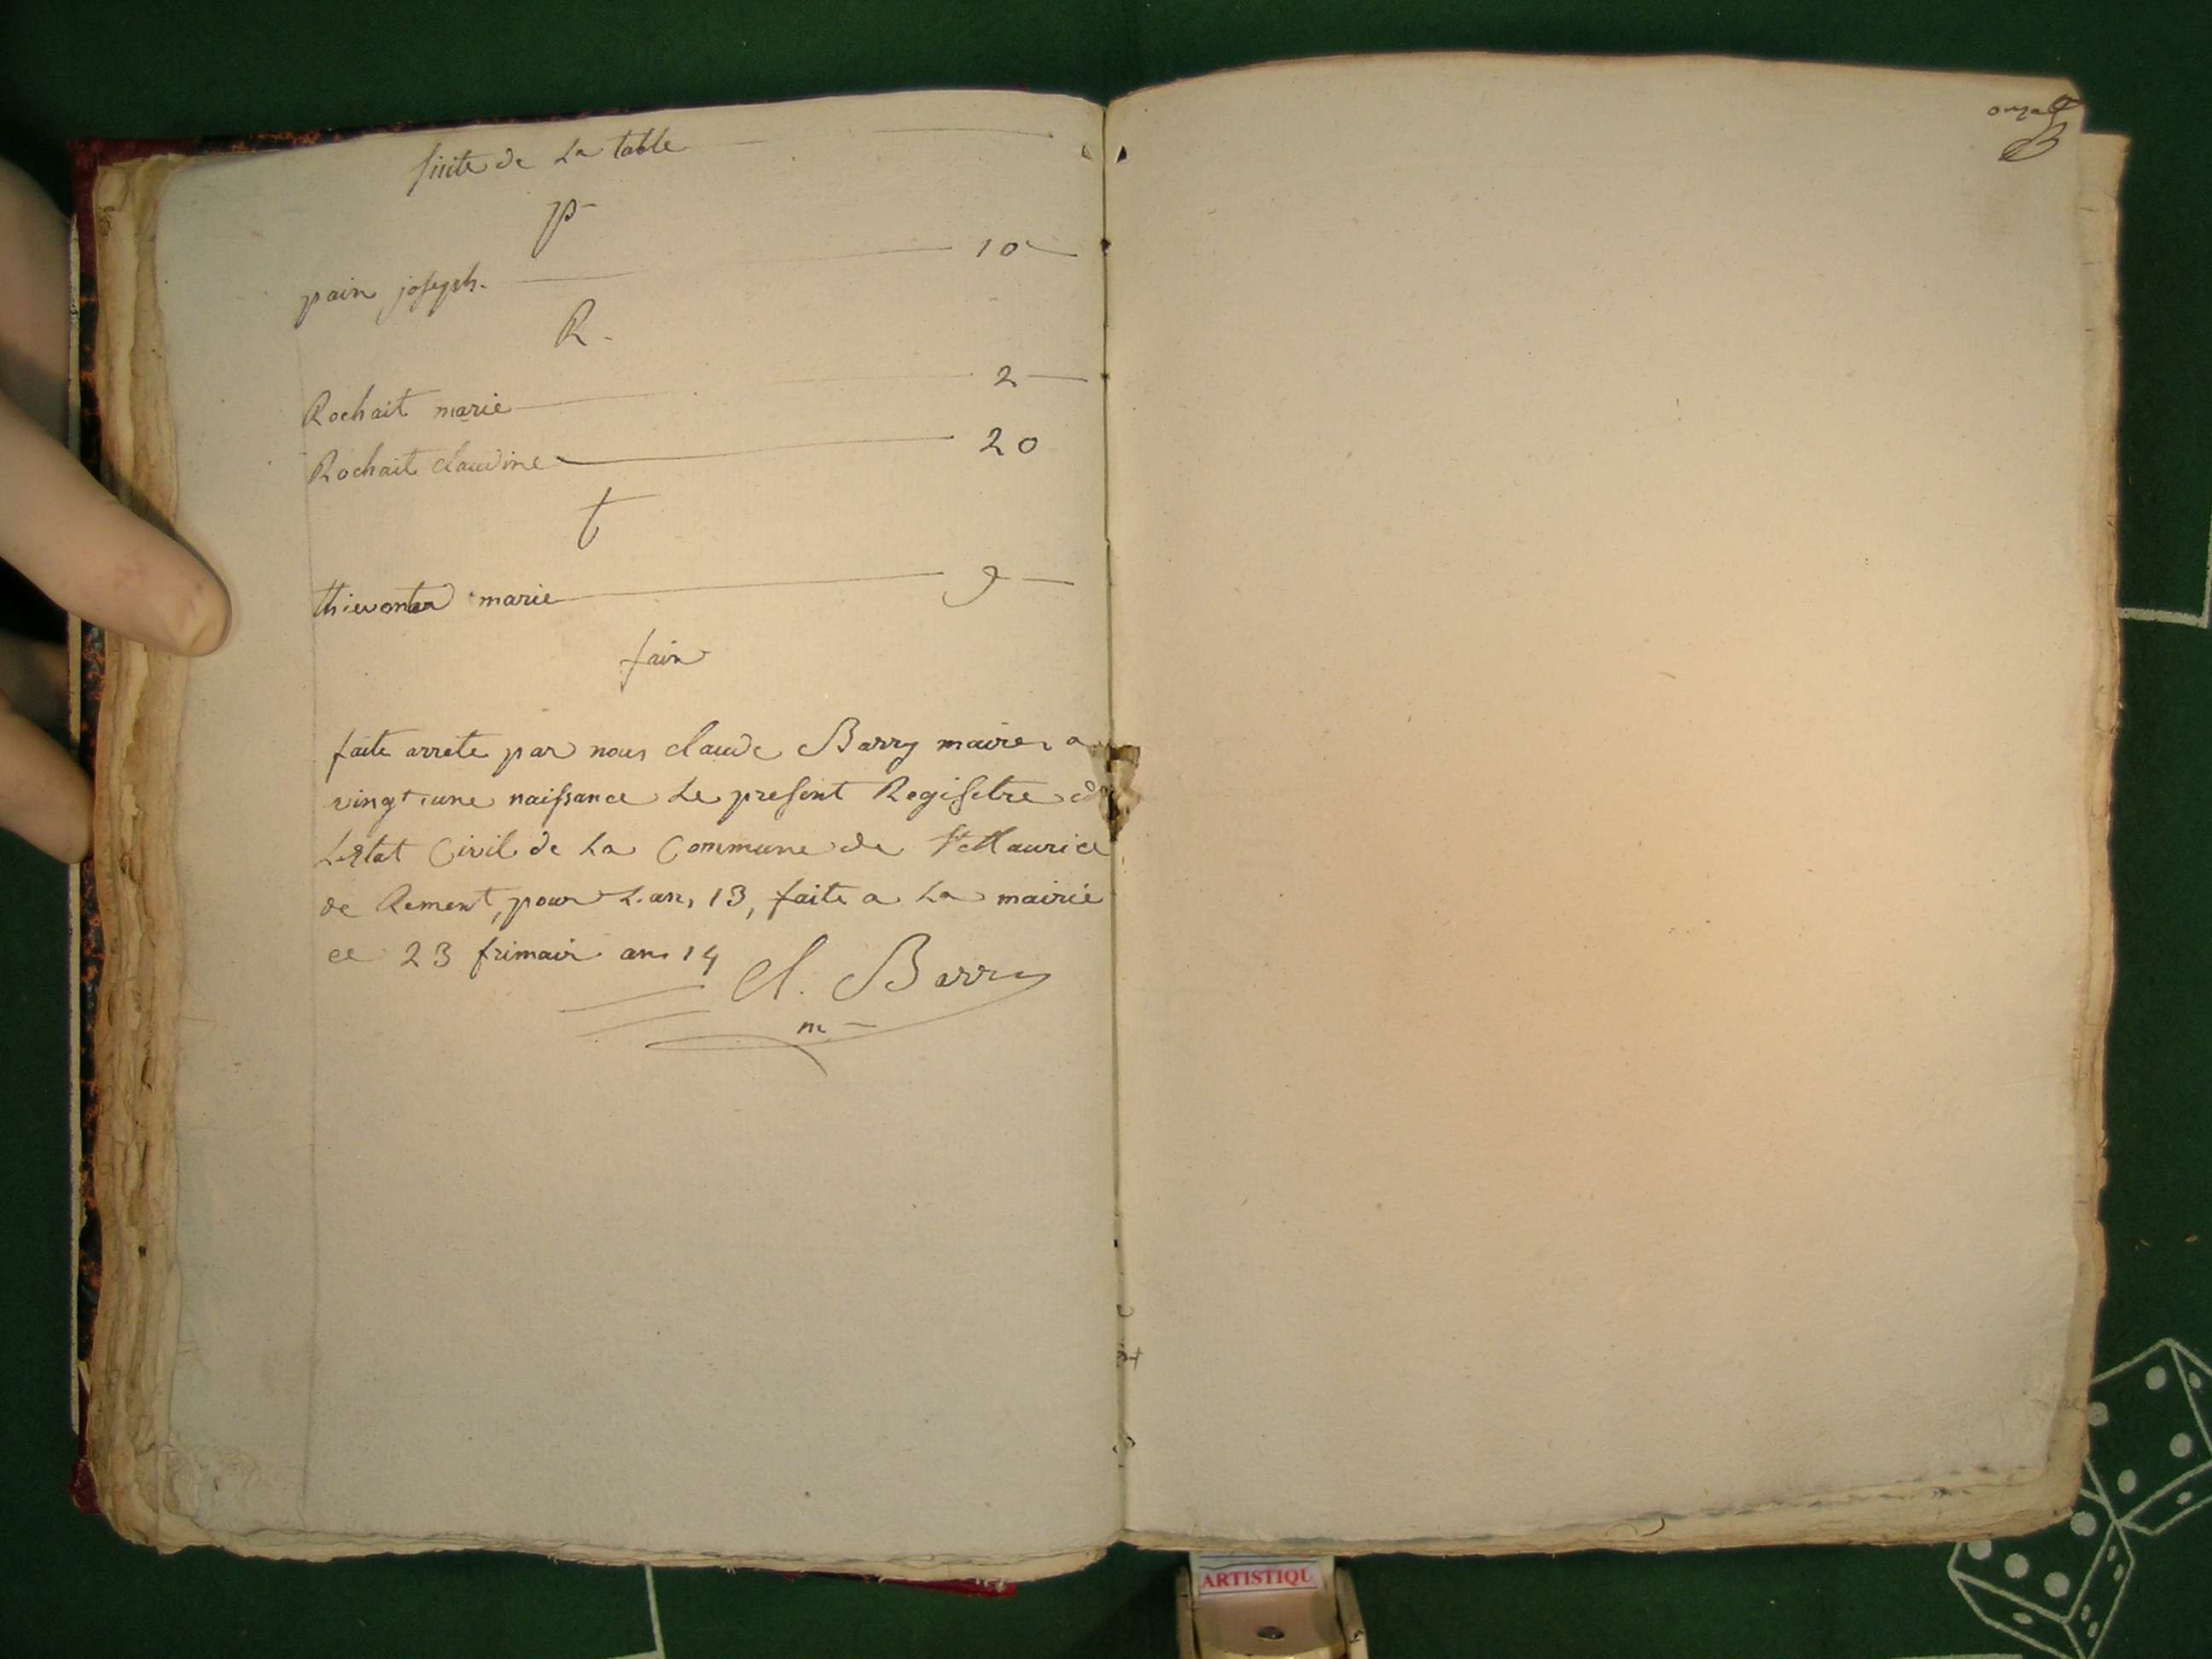 suite de La table
p
pain joseph. 10
R.
Rochait marie 2
Rochait claudine 20
t
marie 9
fain
faite arrete par nous claude Barry maire a
vingt une naissance Le present Registre d
Lestat Civil de La Commune de St Maurice
de Rement, pour L.an, 13, faite a La mairie
ce 23 frimair an 14
Cl. Barry
m
onze
B
ARTISTIQU